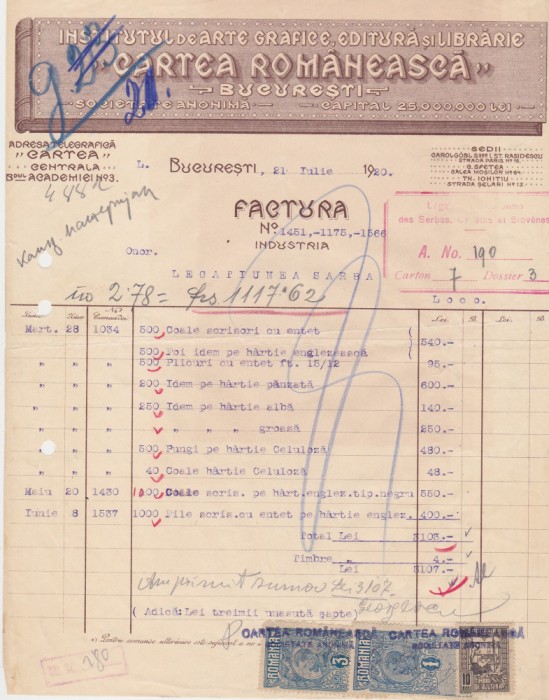 INSTITUTUL DE ARTE GRAFICE, EDITURĂ ȘI LIBRĂRIE
"CARTEA ROMÂNEASCĂ"
BUCUREȘTI
SOCIETATE ANONIMĂ CAPITAL 25.000.000 LEI
ADRESA TELEGRAFICĂ
"CARTEA"
CENTRALA
BDUL ACADEMIEI No3.
SEDII
CAROL GÖBL SR I. ST. RASIDESCU
STRADA PARIS No 16
C. SFETEA
CALEA MOȘILOR No 64
TH. IONIȚIU
STRADA ȘELARI No 12
L. BUCUREȘTI, 21 Iulie 1920.
FACTURA
No. 1451,-1175,-1566
INDUSTRIA
des Serbes, Croates et Slovènes
A. No. 190
Carton 7 Dossier 3
Onor.
LEGATIUNEA SARBA
2.78 = frs 1117.62
Loco.
Lei B. Lei B.
Mart. 28 1034 500 Coale scrisori cu entet
500 Foi idem pe hârtie englezească 540.-
" " " 500 Plicuri cu entet ft. 15/12 95.-
" " " 200 Idem pe hârtie pânzată 600.-
" " " 250 Idem pe hârtie albă 140.-
" " " " " " groasă 250.-
" " " 500 Pungi pe hârtie Celuloză 480.-
" " " 40 Coale hârtie Celuloză 48.-
Maiu 20 1430 1000 Coale scris. pe hârt.englez.tip.negru 550.-
Iunie 8 1537 1000 File scris.cu entet pe hârtie englez. 400.-
Total Lei 3103.-
Timbre " 4.-
Lei 3107.-
Am primit suma Lei 3107
(Adică:Lei treimii unasută șapte)
CARTEA ROMÂNEASCĂ CARTEA ROMÂNEASCĂ
SOCIETATE ANONIMĂ SOCIETATE ANONIMĂ
ROMANIA 3 ROMANIA 1
10
280